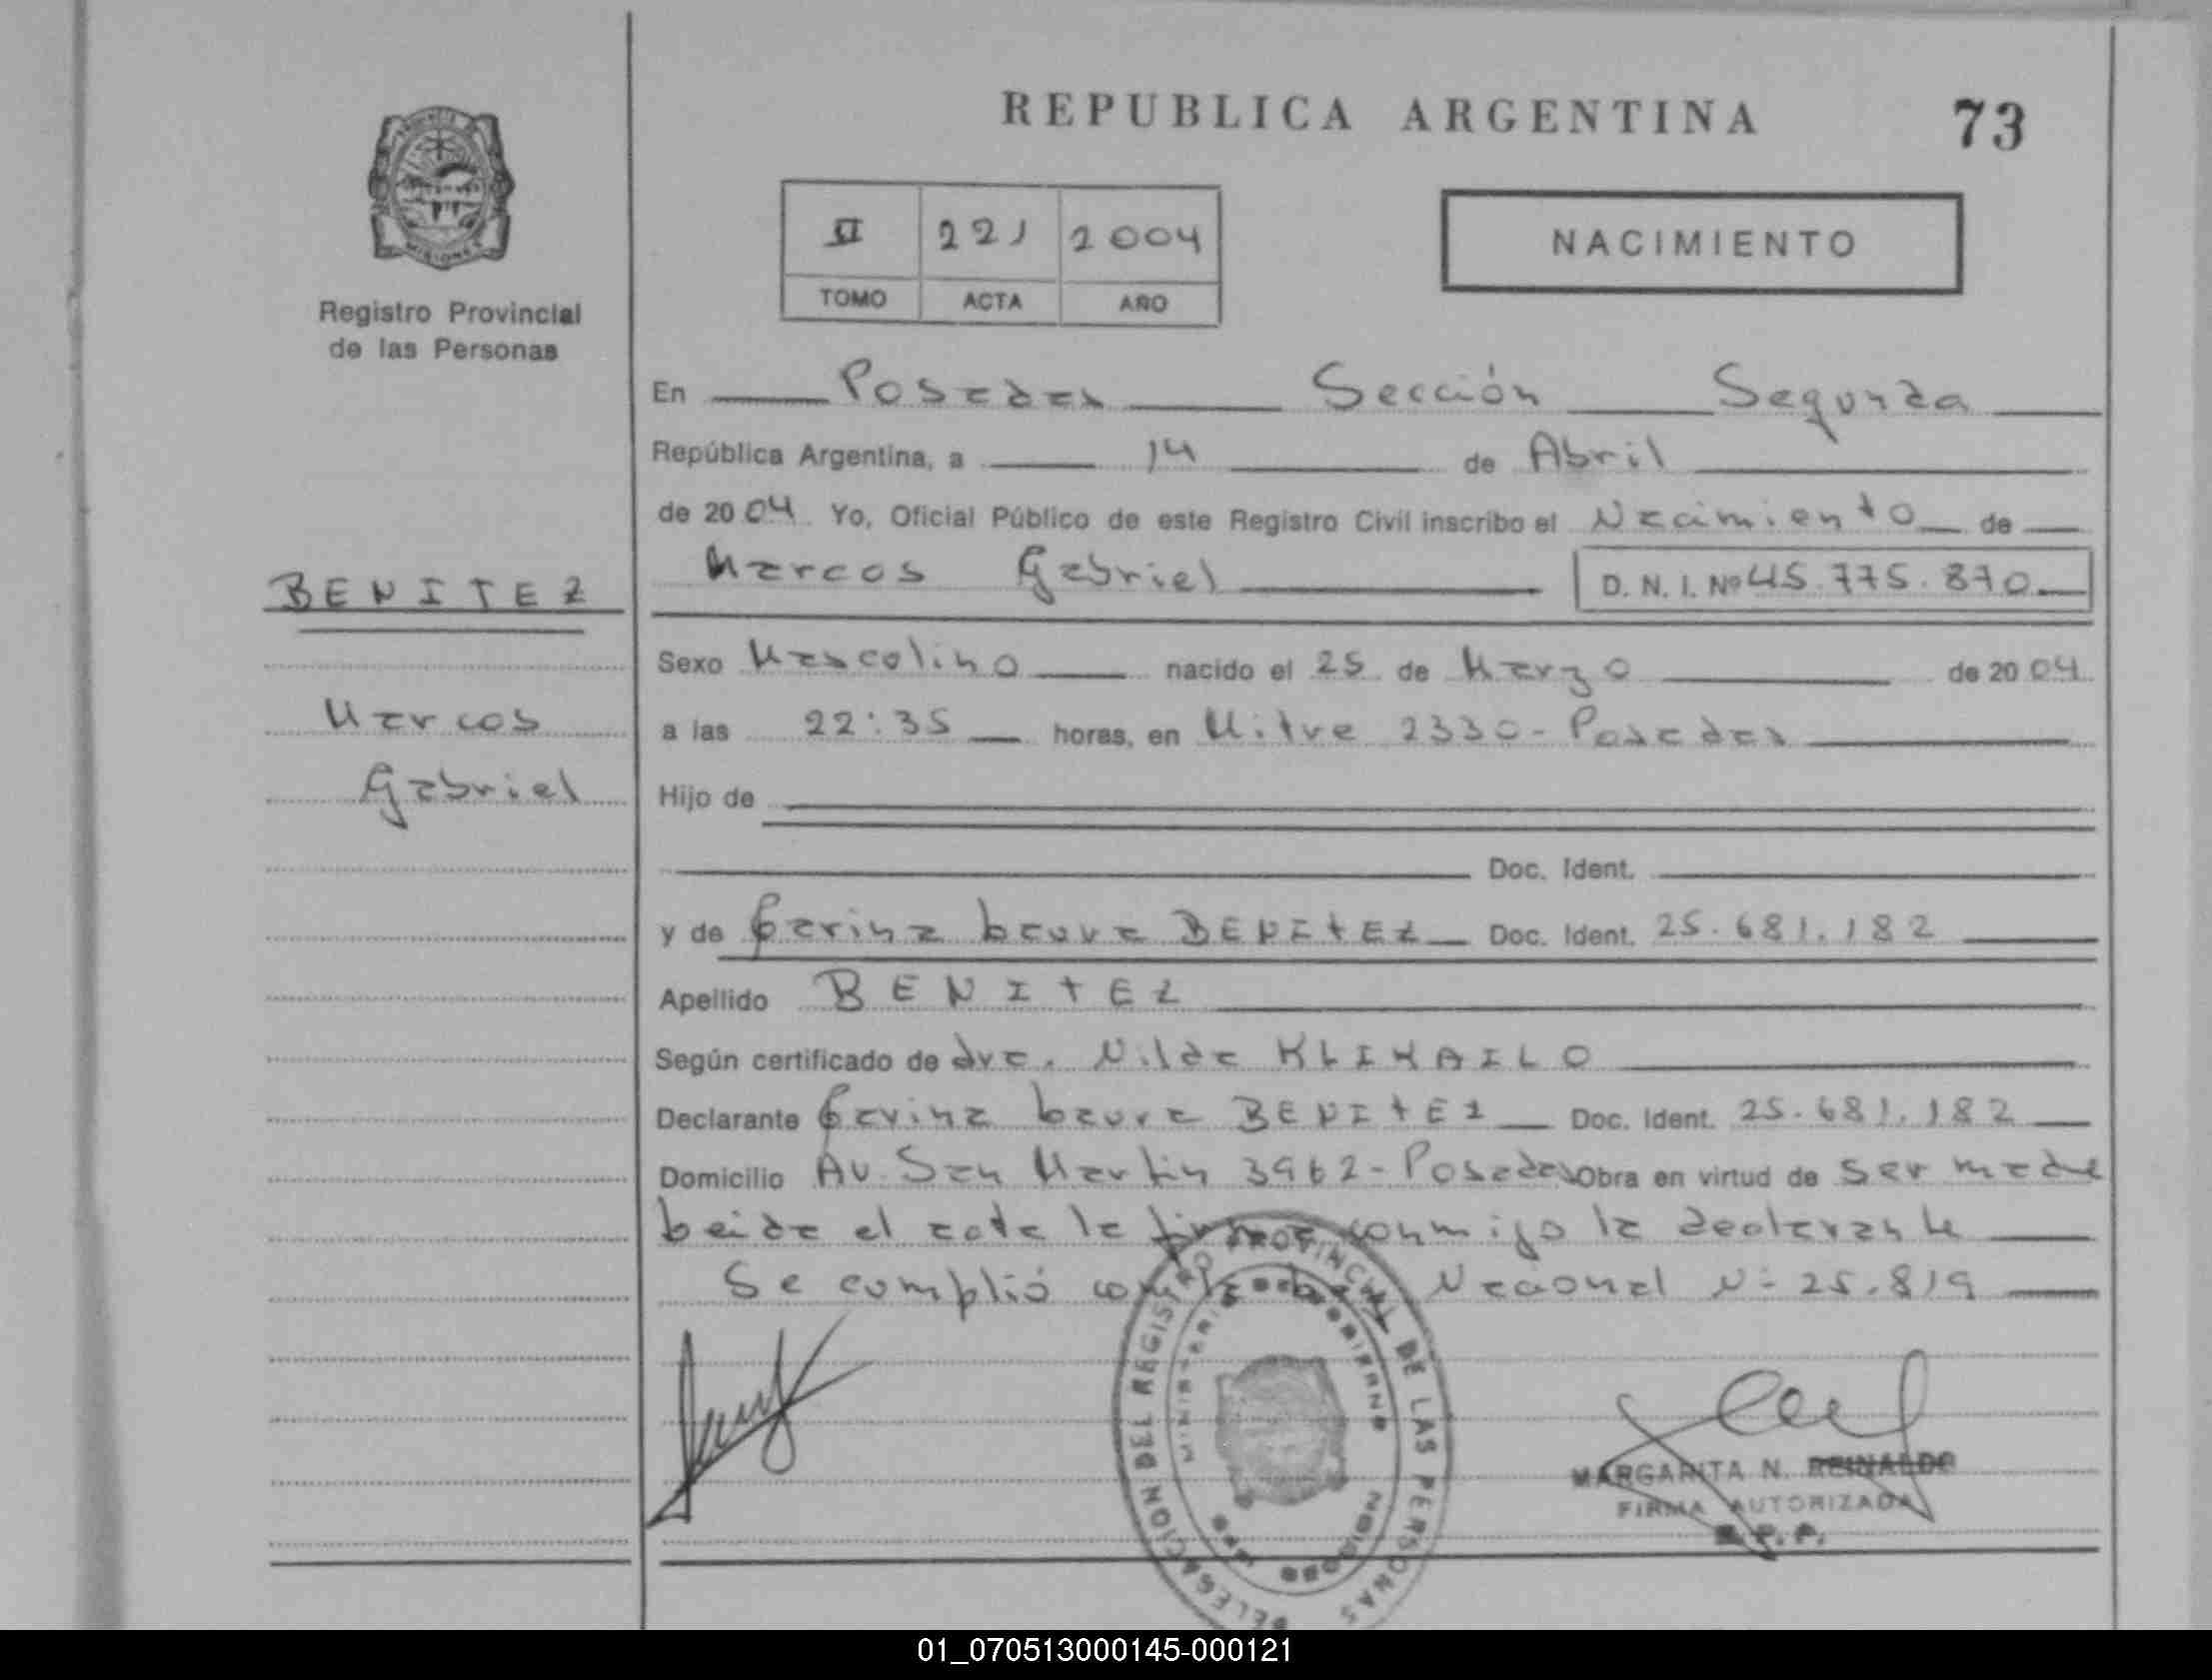 REPUBLICA ARGENTINA 73
MISIONES
Registro Provincial
de las Personas
II 221 2004
TOMO ACTA AÑO
NACIMIENTO
En Posadas Sección Segunda
República Argentina, a 14 de Abril
de 2004 Yo, Oficial Público de este Registro Civil inscribo el Nacimiento de
Marcos Gabriel D. N. I. Nº 45.775.870
BENITEZ
Marcos
Gabriel
Sexo Masculino nacido el 25 de Marzo de 2004
a las 22:35 horas, en Mitre 2330 - Posadas
Hijo de
Doc. Ident.
y de Carina Laura BENITEZ Doc. Ident. 25.681.182
Apellido BENITEZ
Según certificado de dra. Nilda KLIMAILO
Declarante Carina Laura BENITEZ Doc. Ident. 25.681.182
Domicilio Av. San Martin 3962 - Posadas Obra en virtud de ser madre
Leida el acta la firma conmigo la declarante
Se cumplió con la Ley Nacional Nº 25.819
DELEGACION DEL REGISTRO PROVINCIAL DE LAS PERSONAS
MARGARITA N. REINALDO
FIRMA AUTORIZADA
R. P. P.
01_070513000145-000121